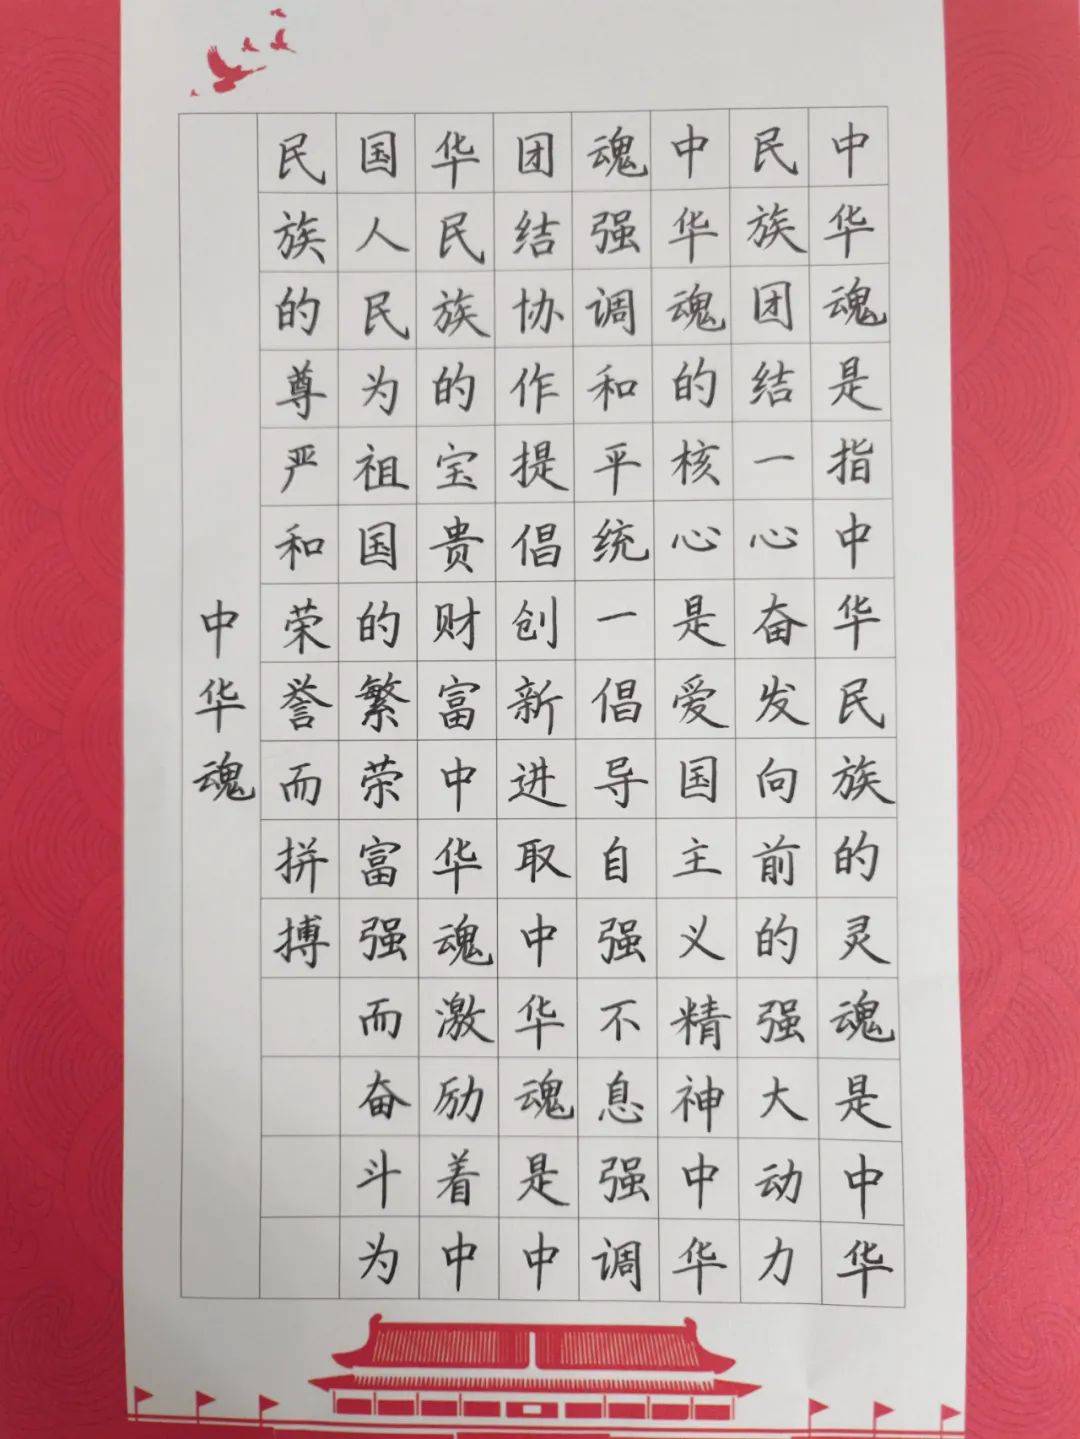 中华魂是指中华民族的灵魂是中华
民族团结一心奋发向前的强大动力
中华魂的核心是爱国主义精神中华
魂强调和平统一倡导自强不息强调
团结协作提倡创新进取中华魂是中
华民族的宝贵财富中华魂激励着中
国人民为祖国的繁荣富强而奋斗为
民族的尊严和荣誉而拼搏
中华魂